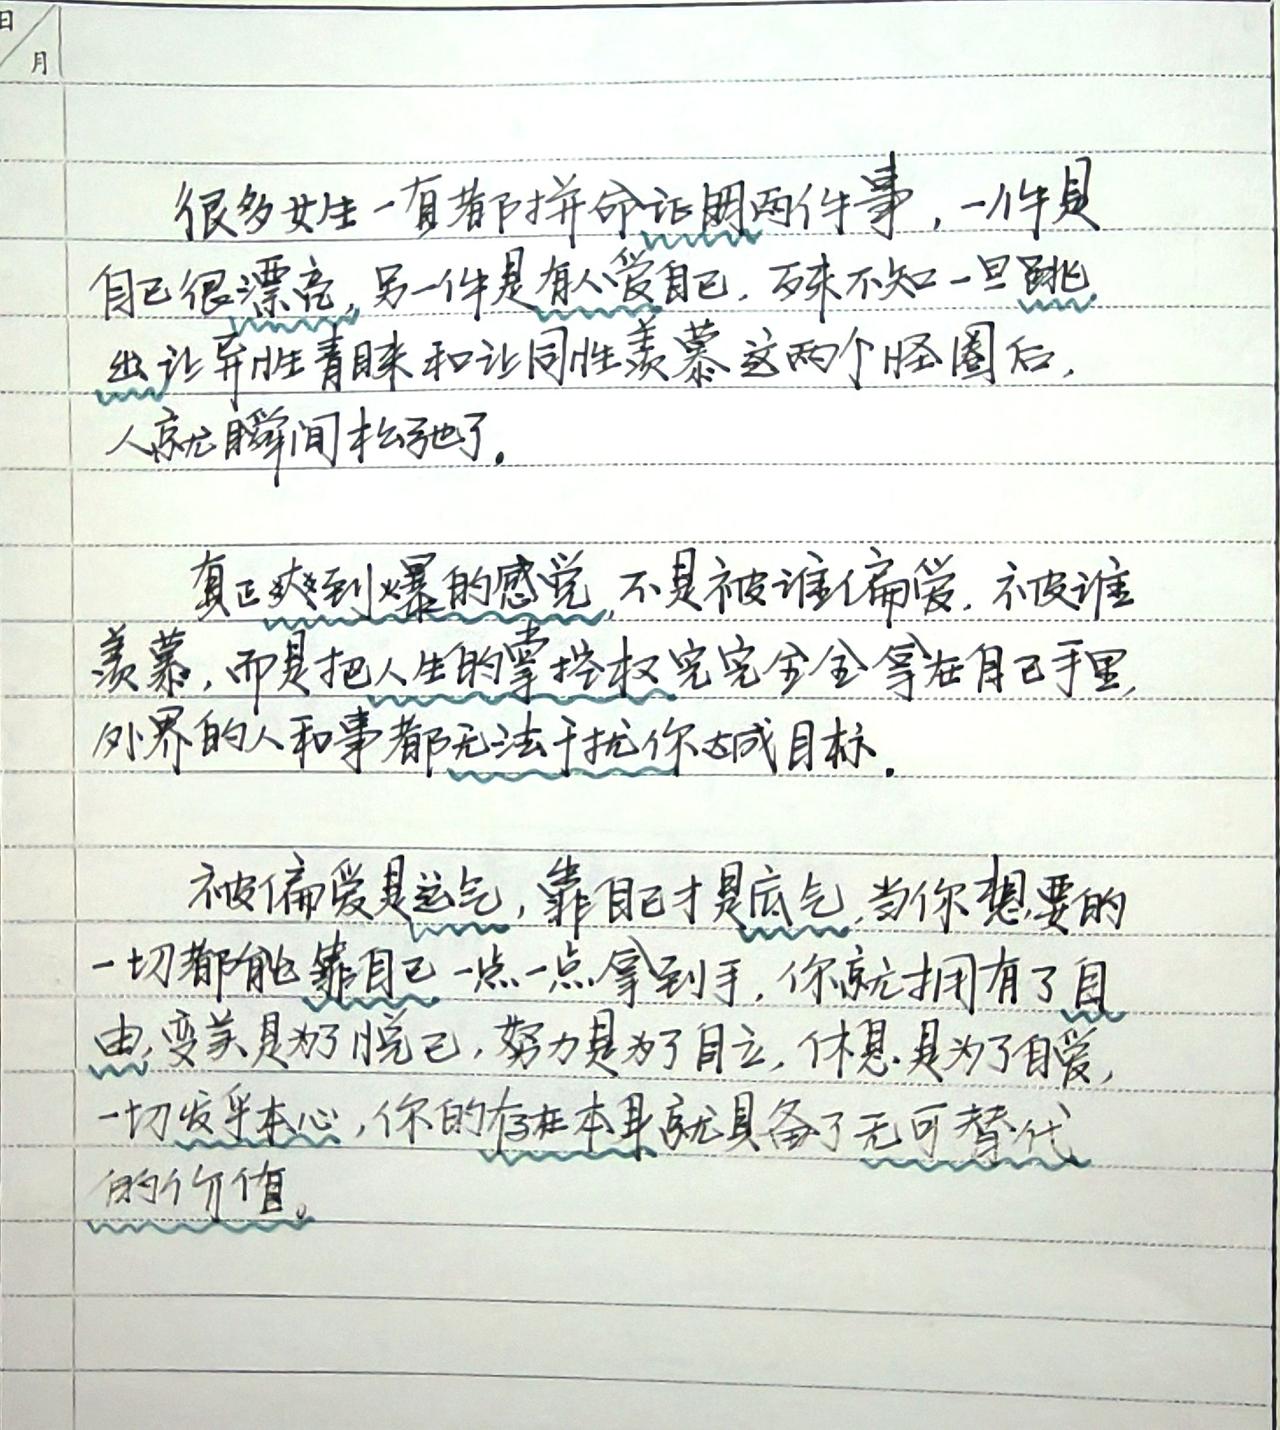 日
月
很多女生一直都拼命证明两件事，一件是
自己很漂亮，另一件是有人爱自己，殊不知一旦跳
出让异性青睐和让同性羡慕这两个怪圈后，
人就瞬间松弛了。
真正爽到爆的感觉，不是被谁偏爱，被谁
羡慕，而是把人生的掌控权完完全全拿在自己手里，
外界的人和事都无法干扰你达成目标。
被偏爱是运气，靠自己才是底气，当你想要的
一切都能靠自己一点一点拿到手，你就拥有了自
由，变美是为了悦己，努力是为了自立，休息是为了自爱，
一切发乎本心，你的存在本身就具备了无可替代
的价值。